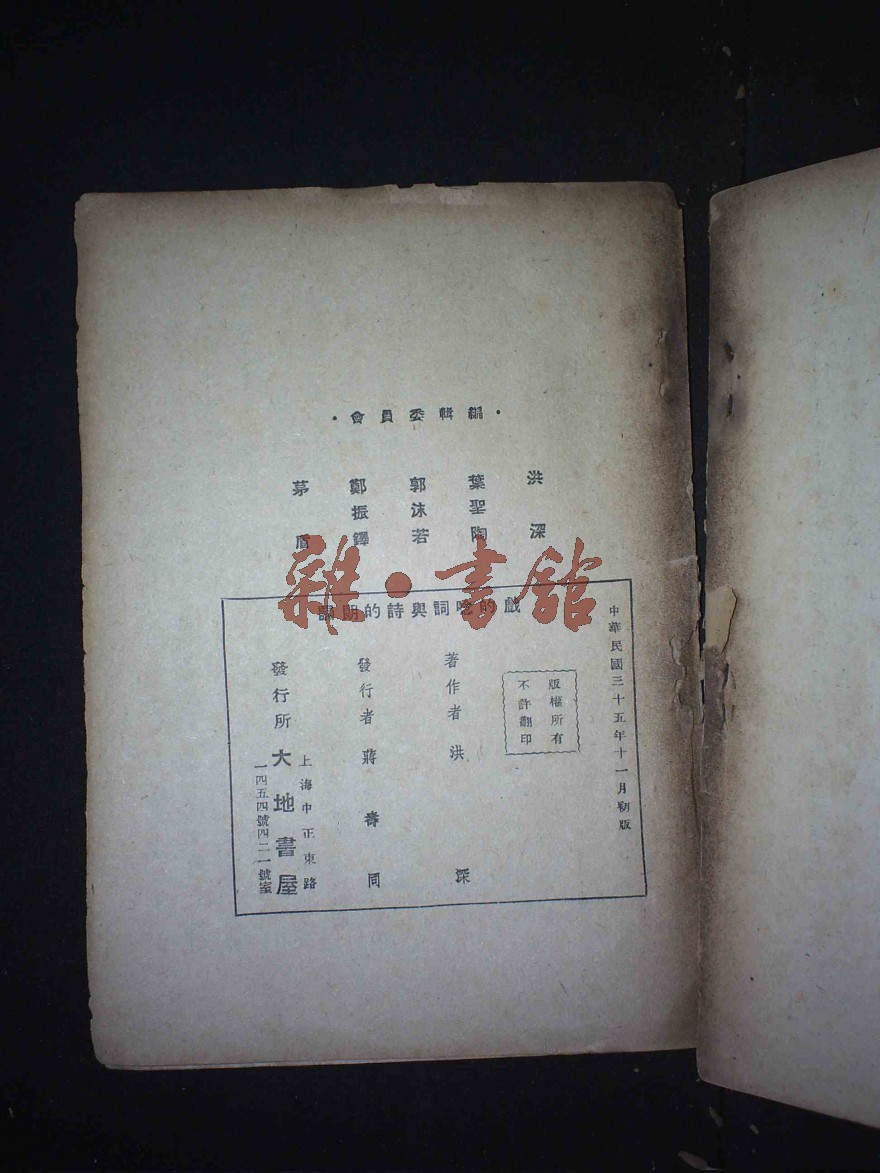 ·編輯委員會·
洪深
葉聖陶
郭沫若
鄭振鐸
茅盾
雜·書館
中華民國三十五年十一月初版
戲的唸詞與詩的朗誦
版權所有
不許翻印
著作者 洪深
發行者 蔣壽同
上海中正東路
發行所 大地書屋
一四五四號四二一號室